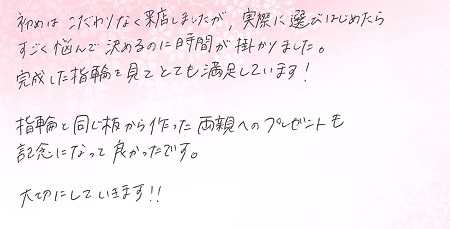 初めは こだわりなく来店しましたが、実際に選びはじめたら
すごく悩んで決めるのに時間が掛かりました。
完成した指輪を見てとても満足しています!
指輪と同じ板から作った両親へのプレゼントも
記念になって良かったです。
大切にしていきます!!